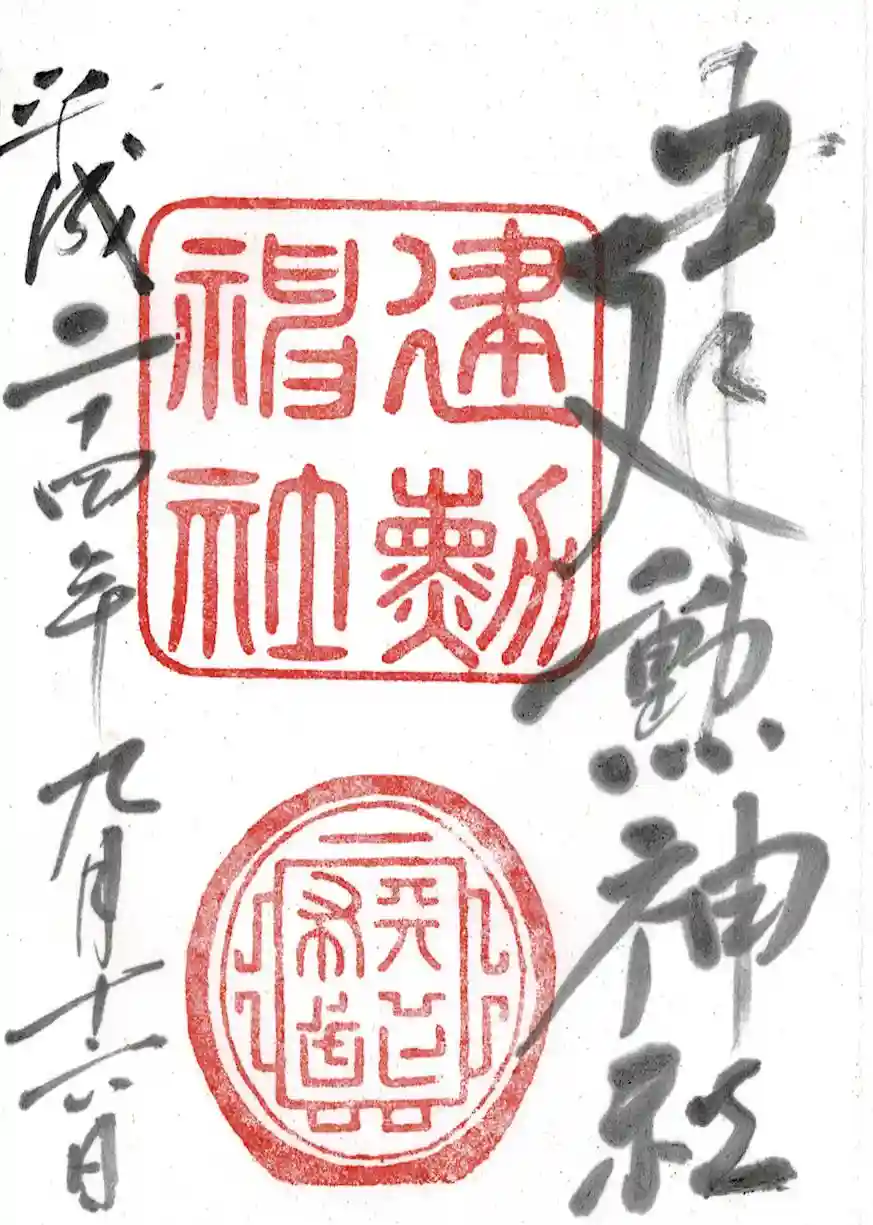 建勲神社
建勲
神社
平成二十四年九月十六日